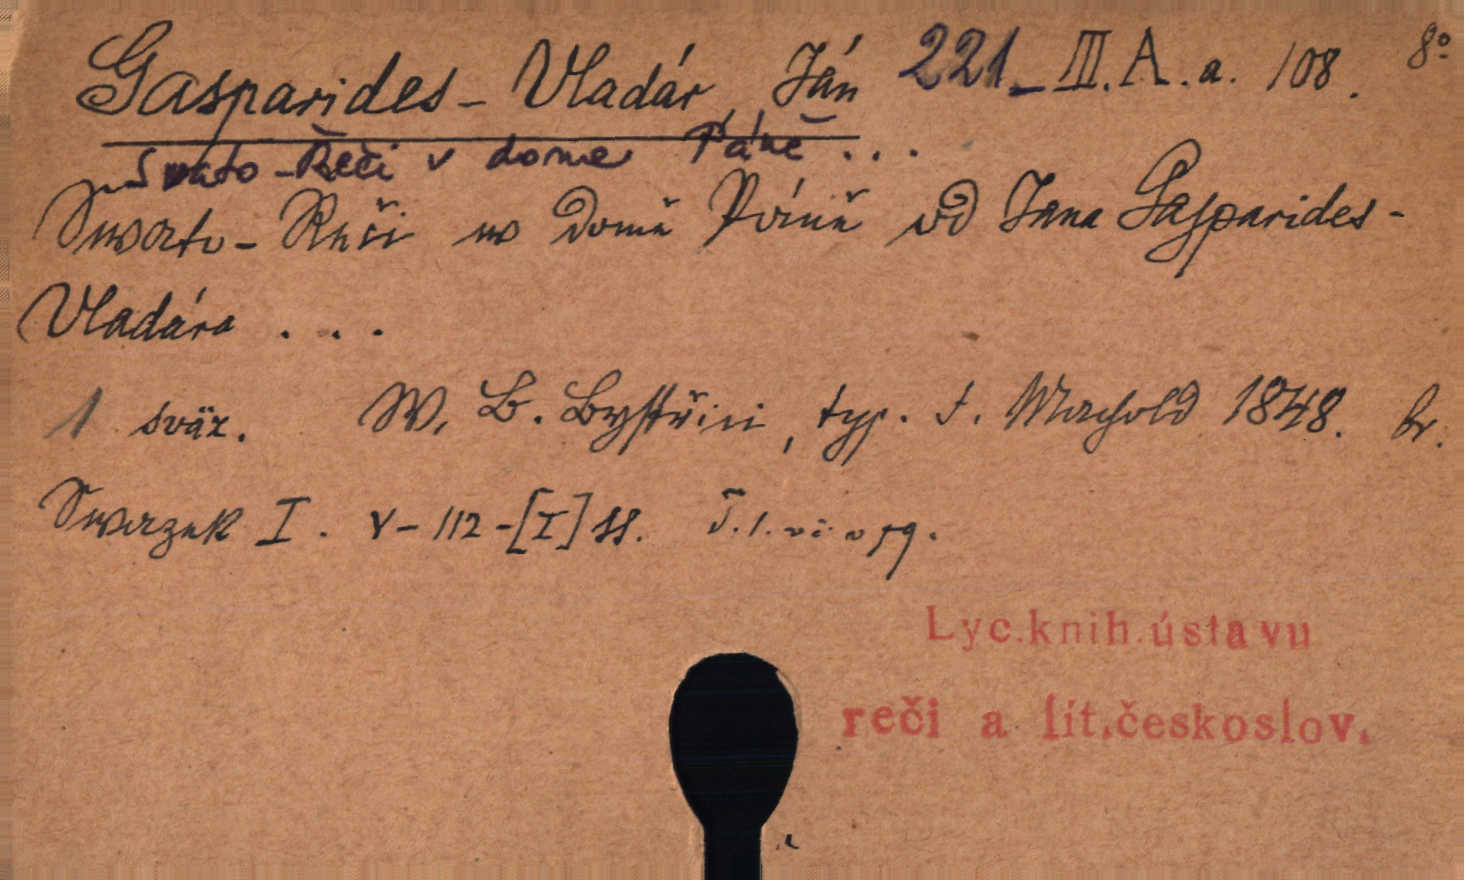 Gasparides - Vladár, Ján 221_III.A.a. 108. 8°
Swato-Řeči v dome Páně ...
Swato-Řeči w Domě Páně od Jana Gasparides-
Vladára ...
1 sväz. W. B. Bystřici, typ. F. Machold 1848. br.
Swazek I. V-112-[I] ss.
Lyc.knih.ústavu
reči a lit.českoslov.